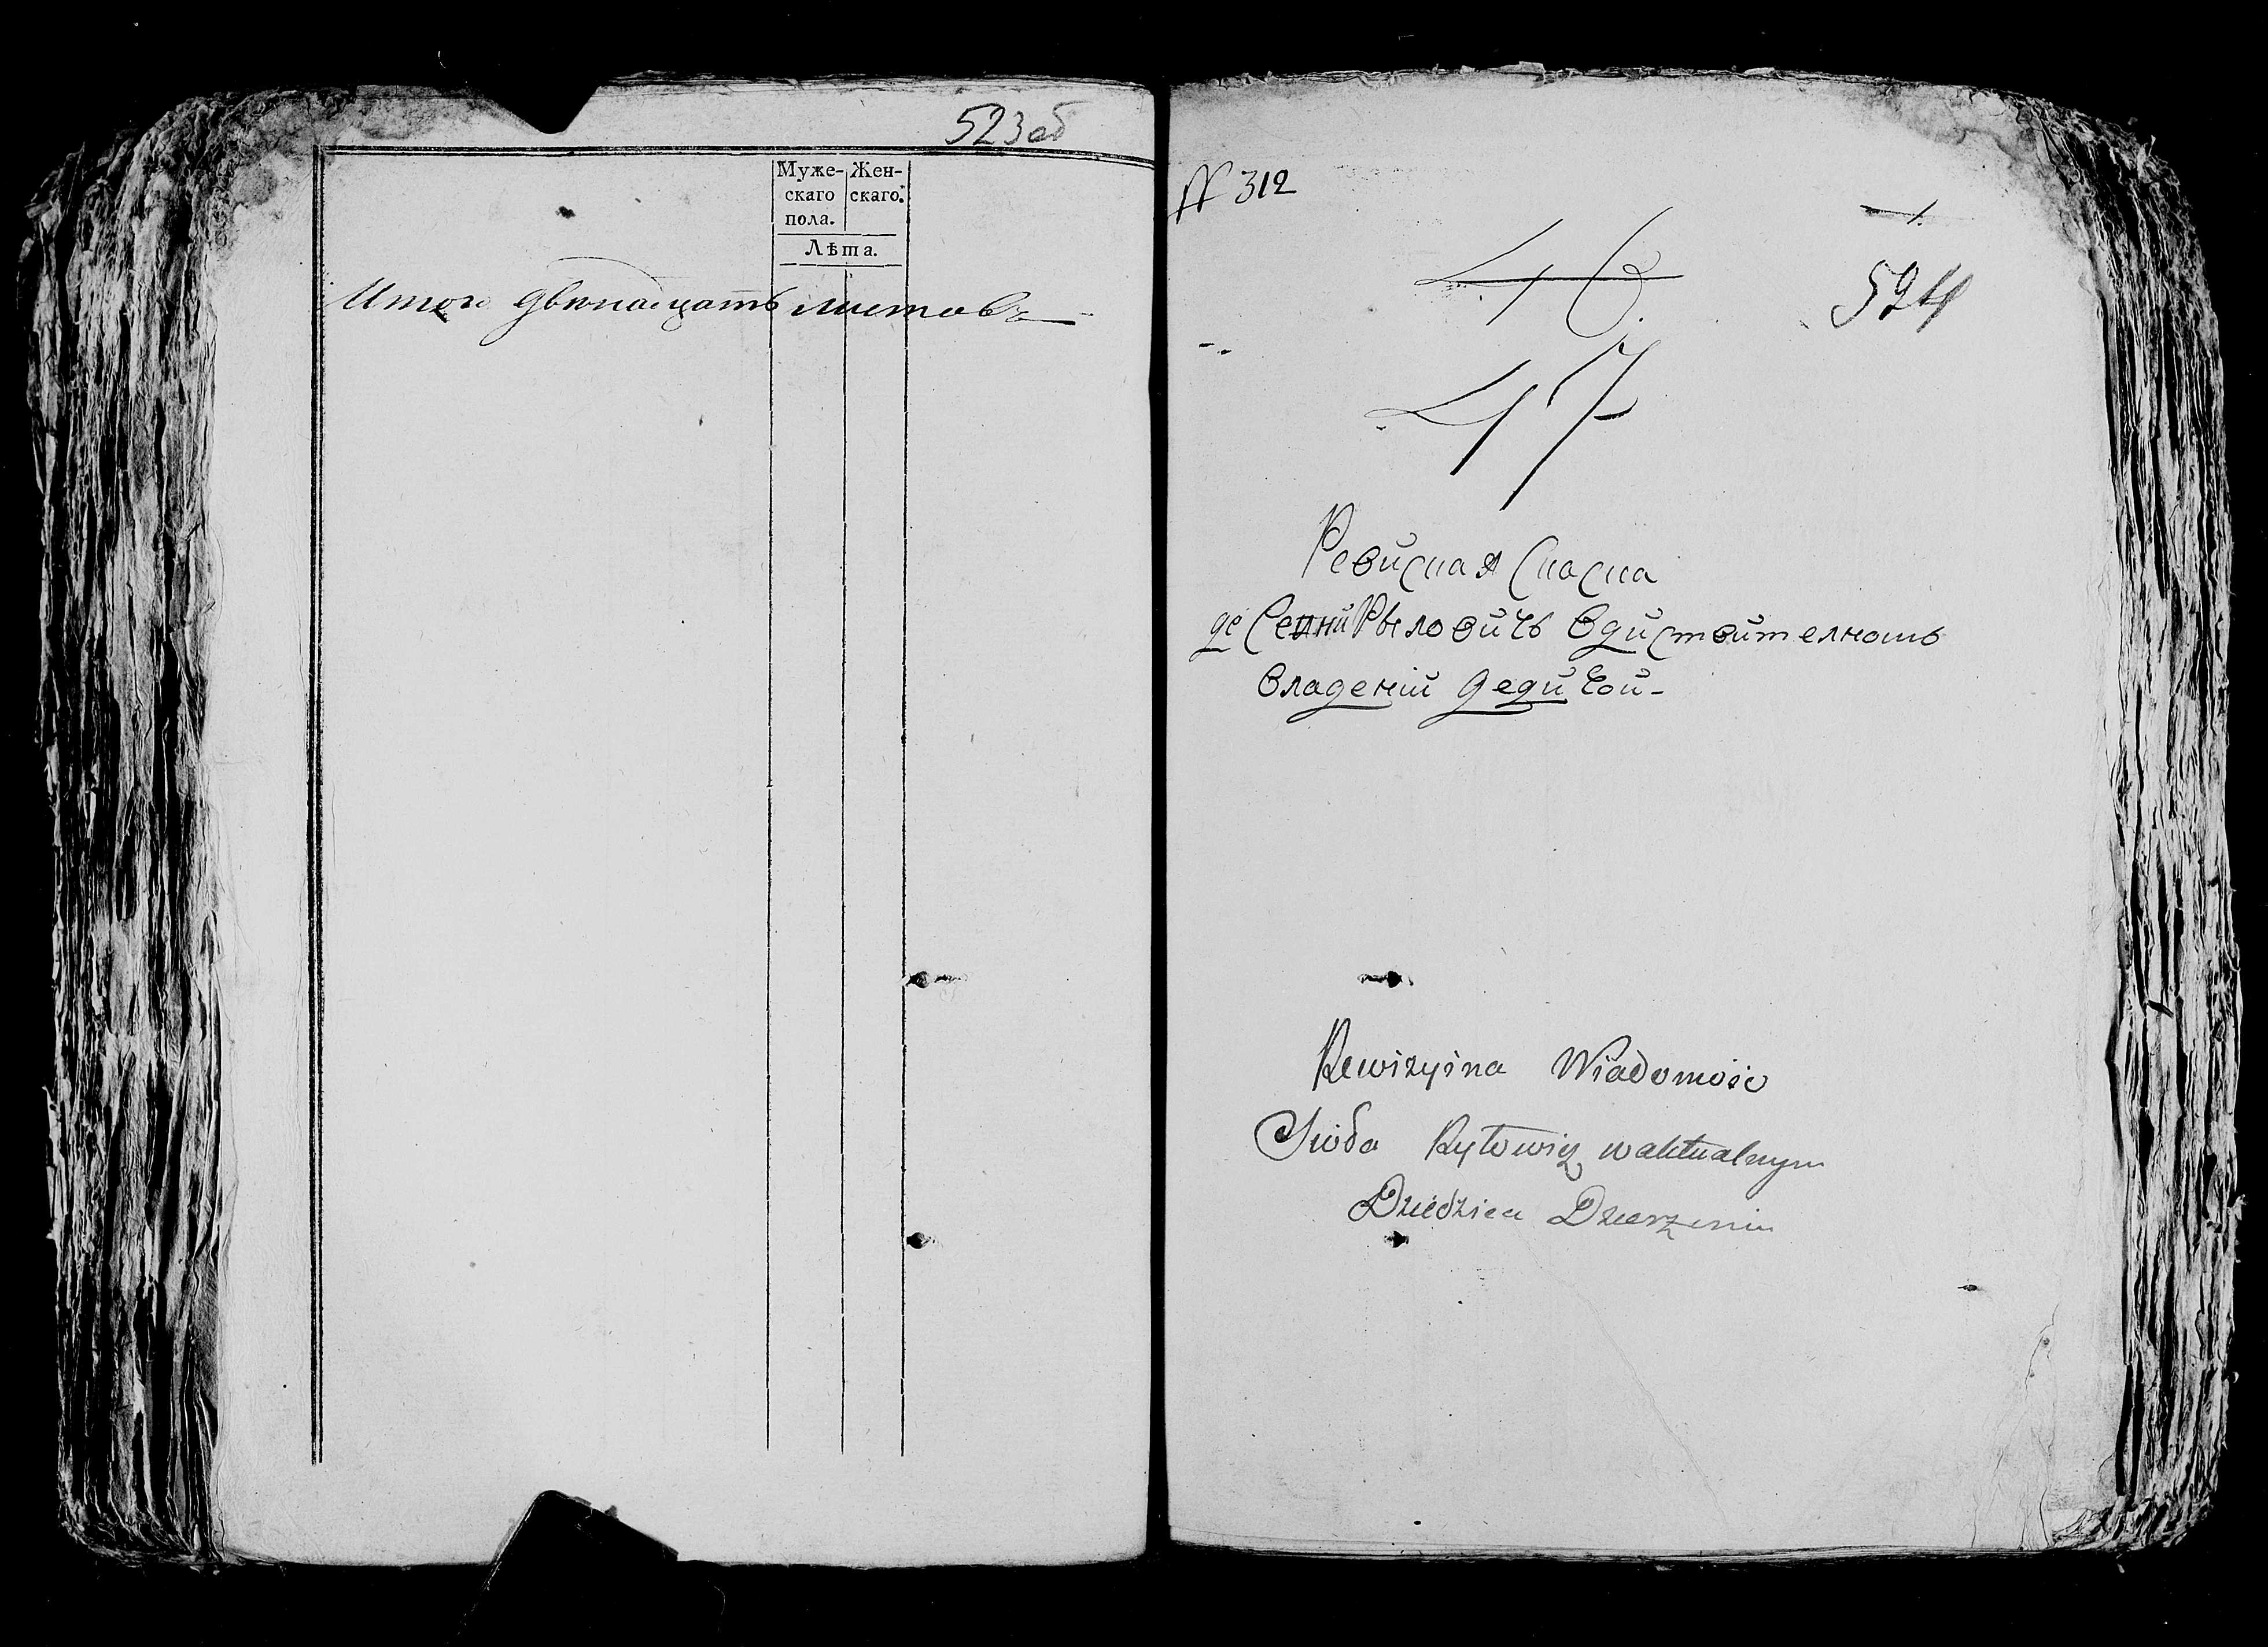 523об
Муже- Жен-
скаго скаго.
пола.
Лѣта.
Итого двѣнадцать листовъ
№ 312
1.
46.
524
47
Ревиская Скаска
де Селни Рыловичъ вдиствителношь
владений дедичой-
Rewizyina Wiadomośc
Sioła Ryłowicz w aktualnym
Dziedzica Dzierzeniu